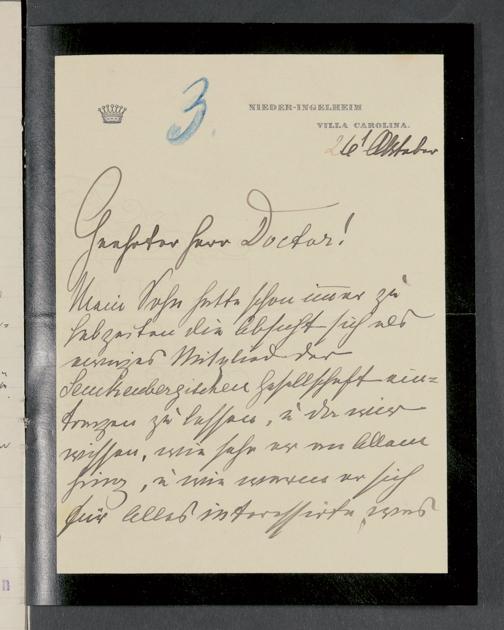 3.
NIEDER-INGELHEIM
VILLA CAROLINA.
26t Oktober
Geehrter Herr Doctor!
Mein Sohn hatte schon immer zu
Lebzeiten die Absicht sich als
ewiges Mitglied der
Senckenbergischen Gesellschaft ein=
tragen zu lassen, u da wir
wissen, wie sehr er an Allem
hing, u wie warm er sich
für Alles interessirte, was